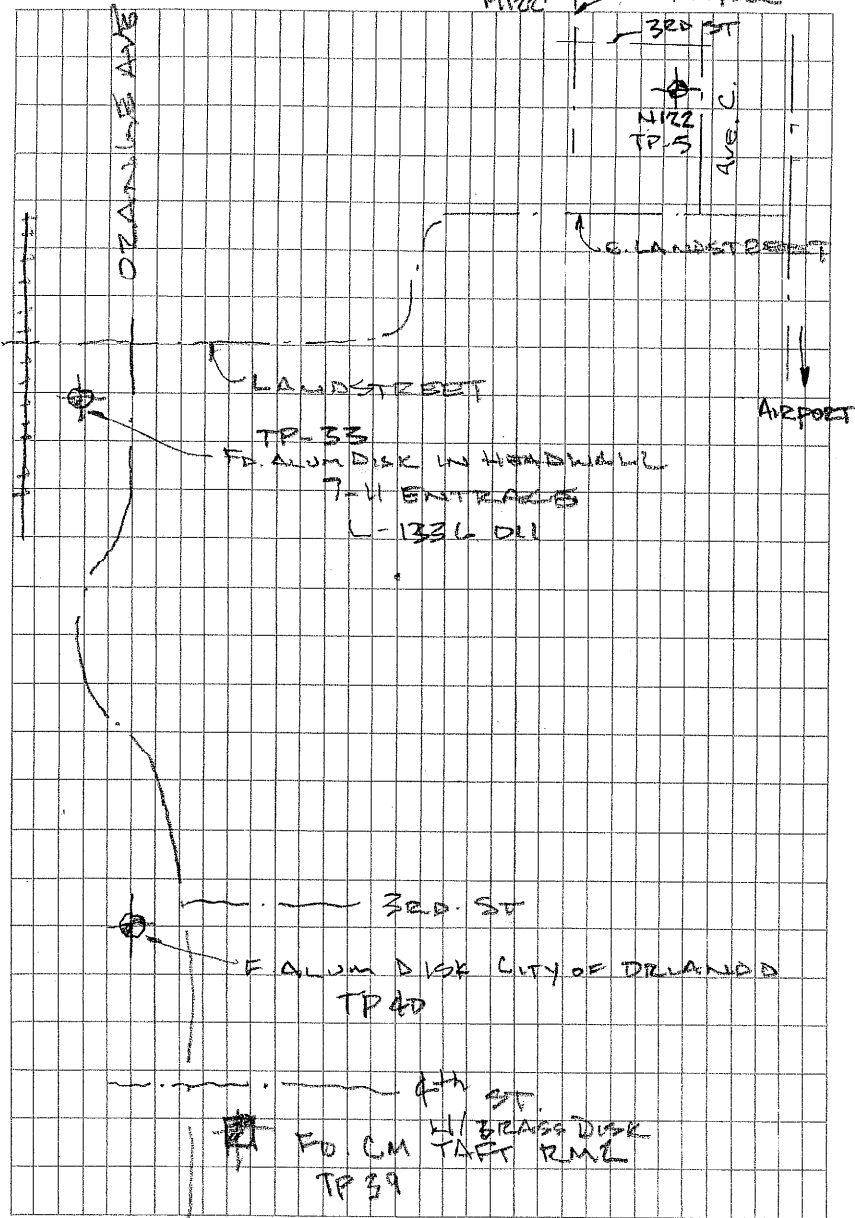 3RD ST
ORANGE AVE
N122
TP-5
AVE. C.
E. LANDSTREET
LANDSTREET
AIRPORT
TP-33
FD. ALUM DISK IN HEADWALL
7-11 ENTRACE
L-1336 011
3RD. ST
F ALUM DISK CITY OF ORLANDO
TP 40
4th ST.
FD. CM W/ BRASS DISK
TAFT RM2
TP 39